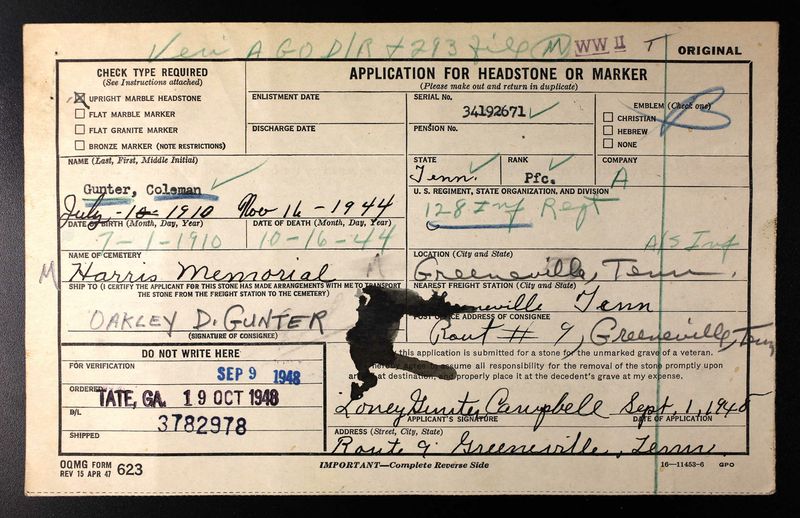 Veri AGO D/R + 293 file M WW II T
ORIGINAL
CHECK TYPE REQUIRED
(See Instructions attached)
UPRIGHT MARBLE HEADSTONE
FLAT MARBLE MARKER
FLAT GRANITE MARKER
BRONZE MARKER (NOTE RESTRICTIONS)
APPLICATION FOR HEADSTONE OR MARKER
(Please make out and return in duplicate)
ENLISTMENT DATE
DISCHARGE DATE
SERIAL No.
34192671
PENSION No.
EMBLEM (Check one)
CHRISTIAN
HEBREW
NONE
B
NAME (Last, First, Middle Initial)
Gunter, Coleman
STATE
Tenn.
RANK
Pfc.
COMPANY
A
U. S. REGIMENT, STATE ORGANIZATION, AND DIVISION
128 Inf Regt
A/S Inf
July - 10 - 1910 Nov 16 - 1944
DATE OF BIRTH (Month, Day, Year) DATE OF DEATH (Month, Day, Year)
7-1-1910 10-16-44
NAME OF CEMETERY
M Harris Memorial M
LOCATION (City and State)
Greeneville, Tenn.
SHIP TO (I CERTIFY THE APPLICANT FOR THIS STONE HAS MADE ARRANGEMENTS WITH ME TO TRANSPORT
THE STONE FROM THE FREIGHT STATION TO THE CEMETERY)
OAKLEY D. GUNTER
(SIGNATURE OF CONSIGNEE)
NEAREST FREIGHT STATION (City and State)
neville Tenn
POST OFFICE ADDRESS OF CONSIGNEE
Rout # 9, Greeneville, Tenn
DO NOT WRITE HERE
FOR VERIFICATION
SEP 9 1948
ORDERED
TATE, GA. 19 OCT 1948
B/L
3782978
SHIPPED
this application is submitted for a stone for the unmarked grave of a veteran.
ume all responsibility for the removal of the stone promptly upon
at destination, and properly place it at the decedent's grave at my expense.
Loney Gunter Campbell Sept. 1, 1948
APPLICANT'S SIGNATURE DATE OF APPLICATION
ADDRESS (Street, City, State)
Route 9 Greeneville, Tenn.
OQMG FORM
REV 15 APR 47 623
IMPORTANT—Complete Reverse Side
16—11453-6 GPO